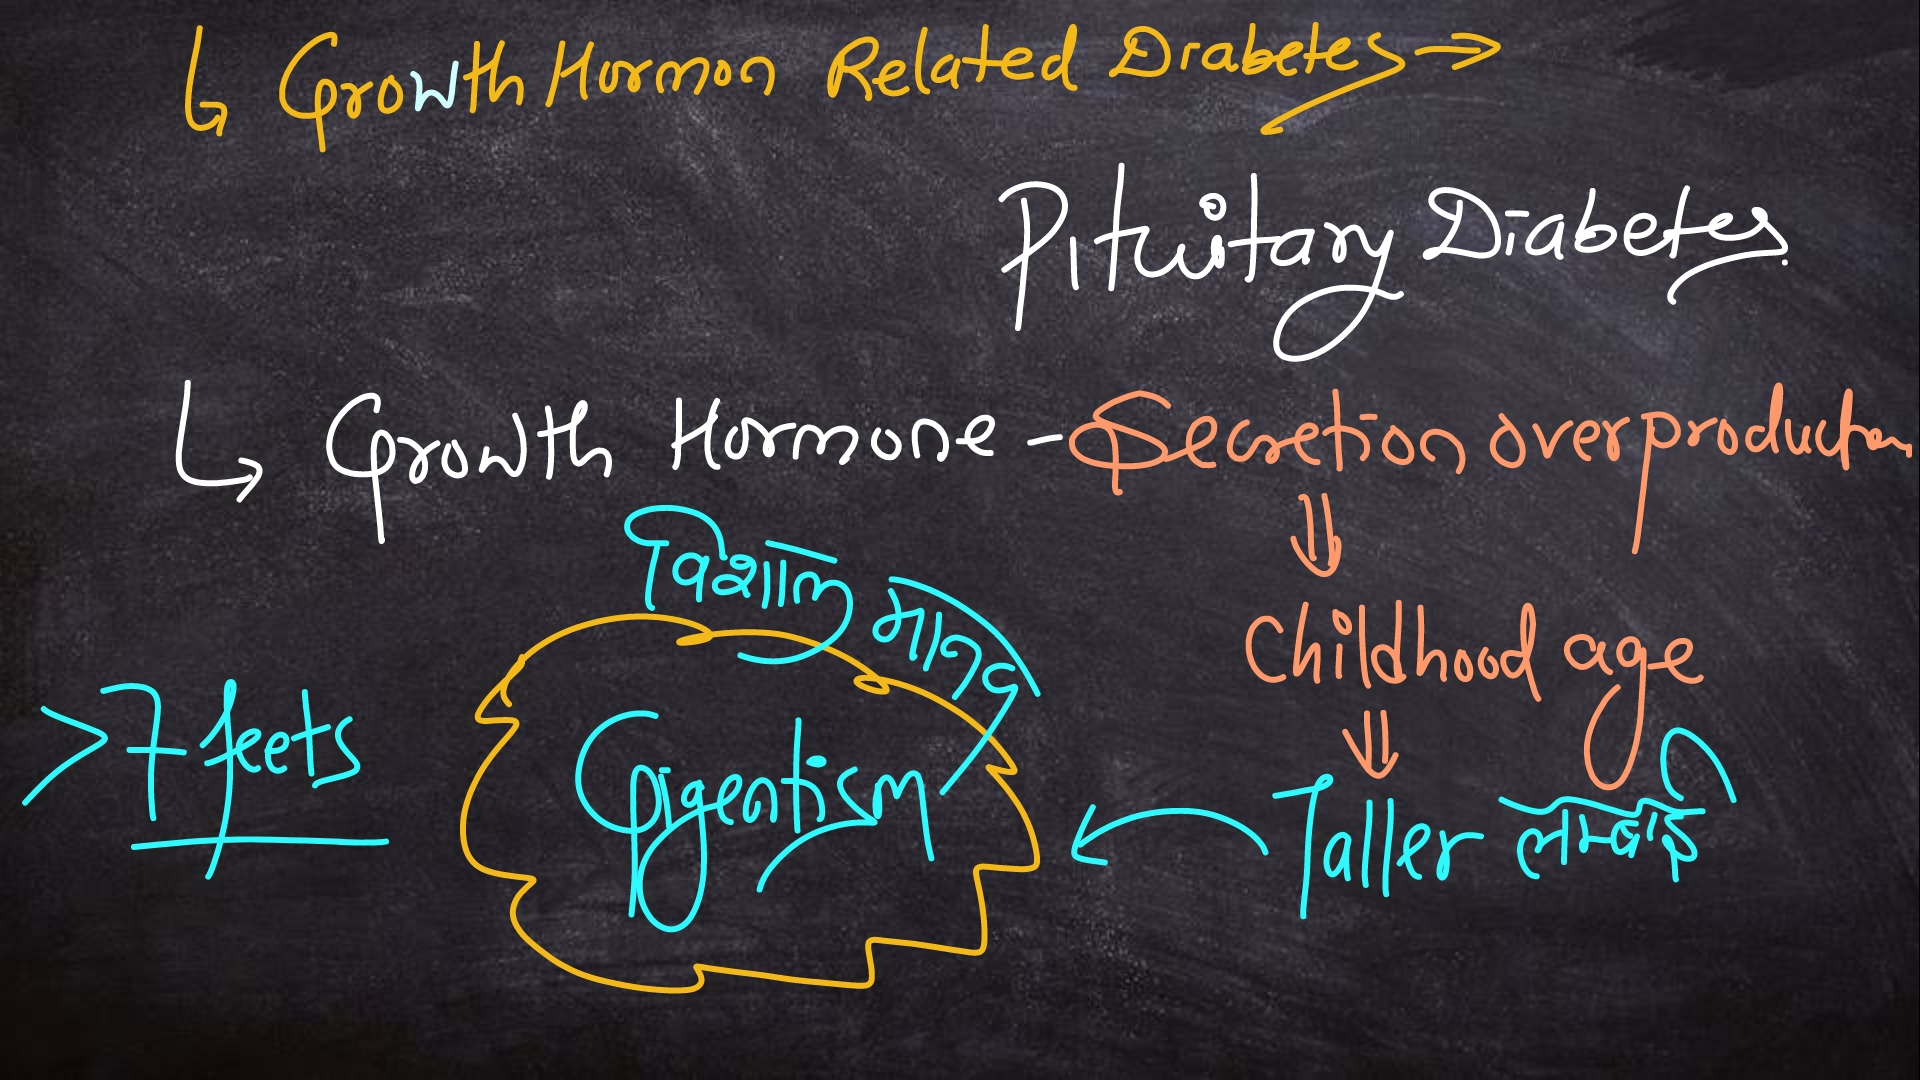 ↳ Growth Hormon Related Drabetes →
Pituitary Diabetes
↳ Growth Hormone - Secretion over production
⇓
Childhood age
⇓
Taller लम्बाई
विशाल मानव
Gigentism
> 7 feets